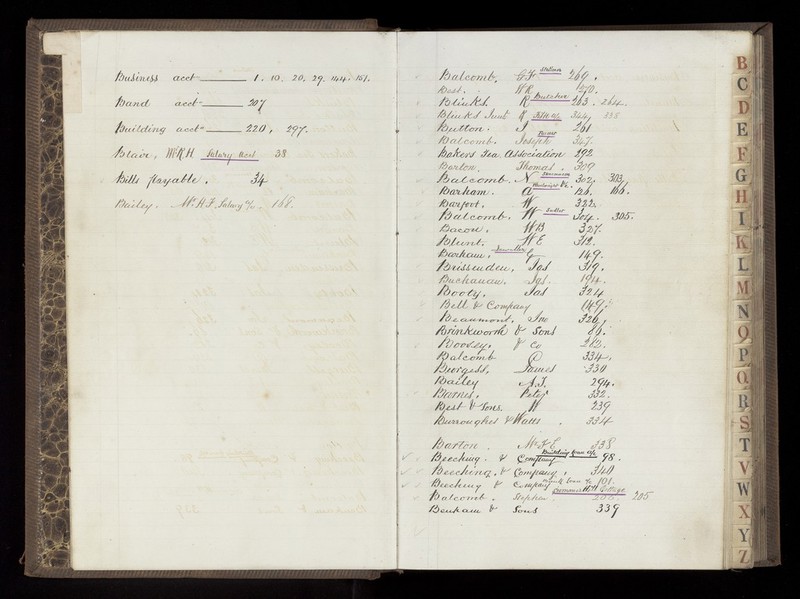 Business acct 1. 10. 20. 29. 144. 151.
Band acct 207
Building acct 220, 297.
Blair, W.R.H Salary acct 38
Bills payable. 34
Bailey. Salary 168.
Balcomb. G.F Stationer 269.
Best. W R 270.
Blinkh R Butcher 263. 264.
344, 338
Button. J 261
Balcomb. Joseph 347.
Bakers Tea Association 292
Barton. Thomas. 309
Balcomb. N 302, 303,
Barham. A 126. 166.
Barfoot. W 322.
Balcomb. W 304. 305.
Bacon. W B 327.
Blunt. W E 312.
Barham. G 149.
Brissenden. Jas 319.
Buchanan. Jas. 194.
Booty. Jas 324
Bell & Company 149.
Beaumont. Jno 326.
Brinkworth & Sons 86.
Boosey. & Co 262.
Balcomb 334.
Burgess. James 330
Bailey A.J. 294.
Barnes. Peter 332.
Best & Sons. W 239
Burroughes & Watts. 334
Barton. 338
Building Loan a/c
Beeching. & Company 98.
Beeching. & Company. 340
Beeching & Company 101.
Balcomb. Stephen 205
Benham & Sons 339
B
C
D
E
F
G
H
I
K
L
M
N
O
P
Q
R
S
T
V
W
X
Y
Z